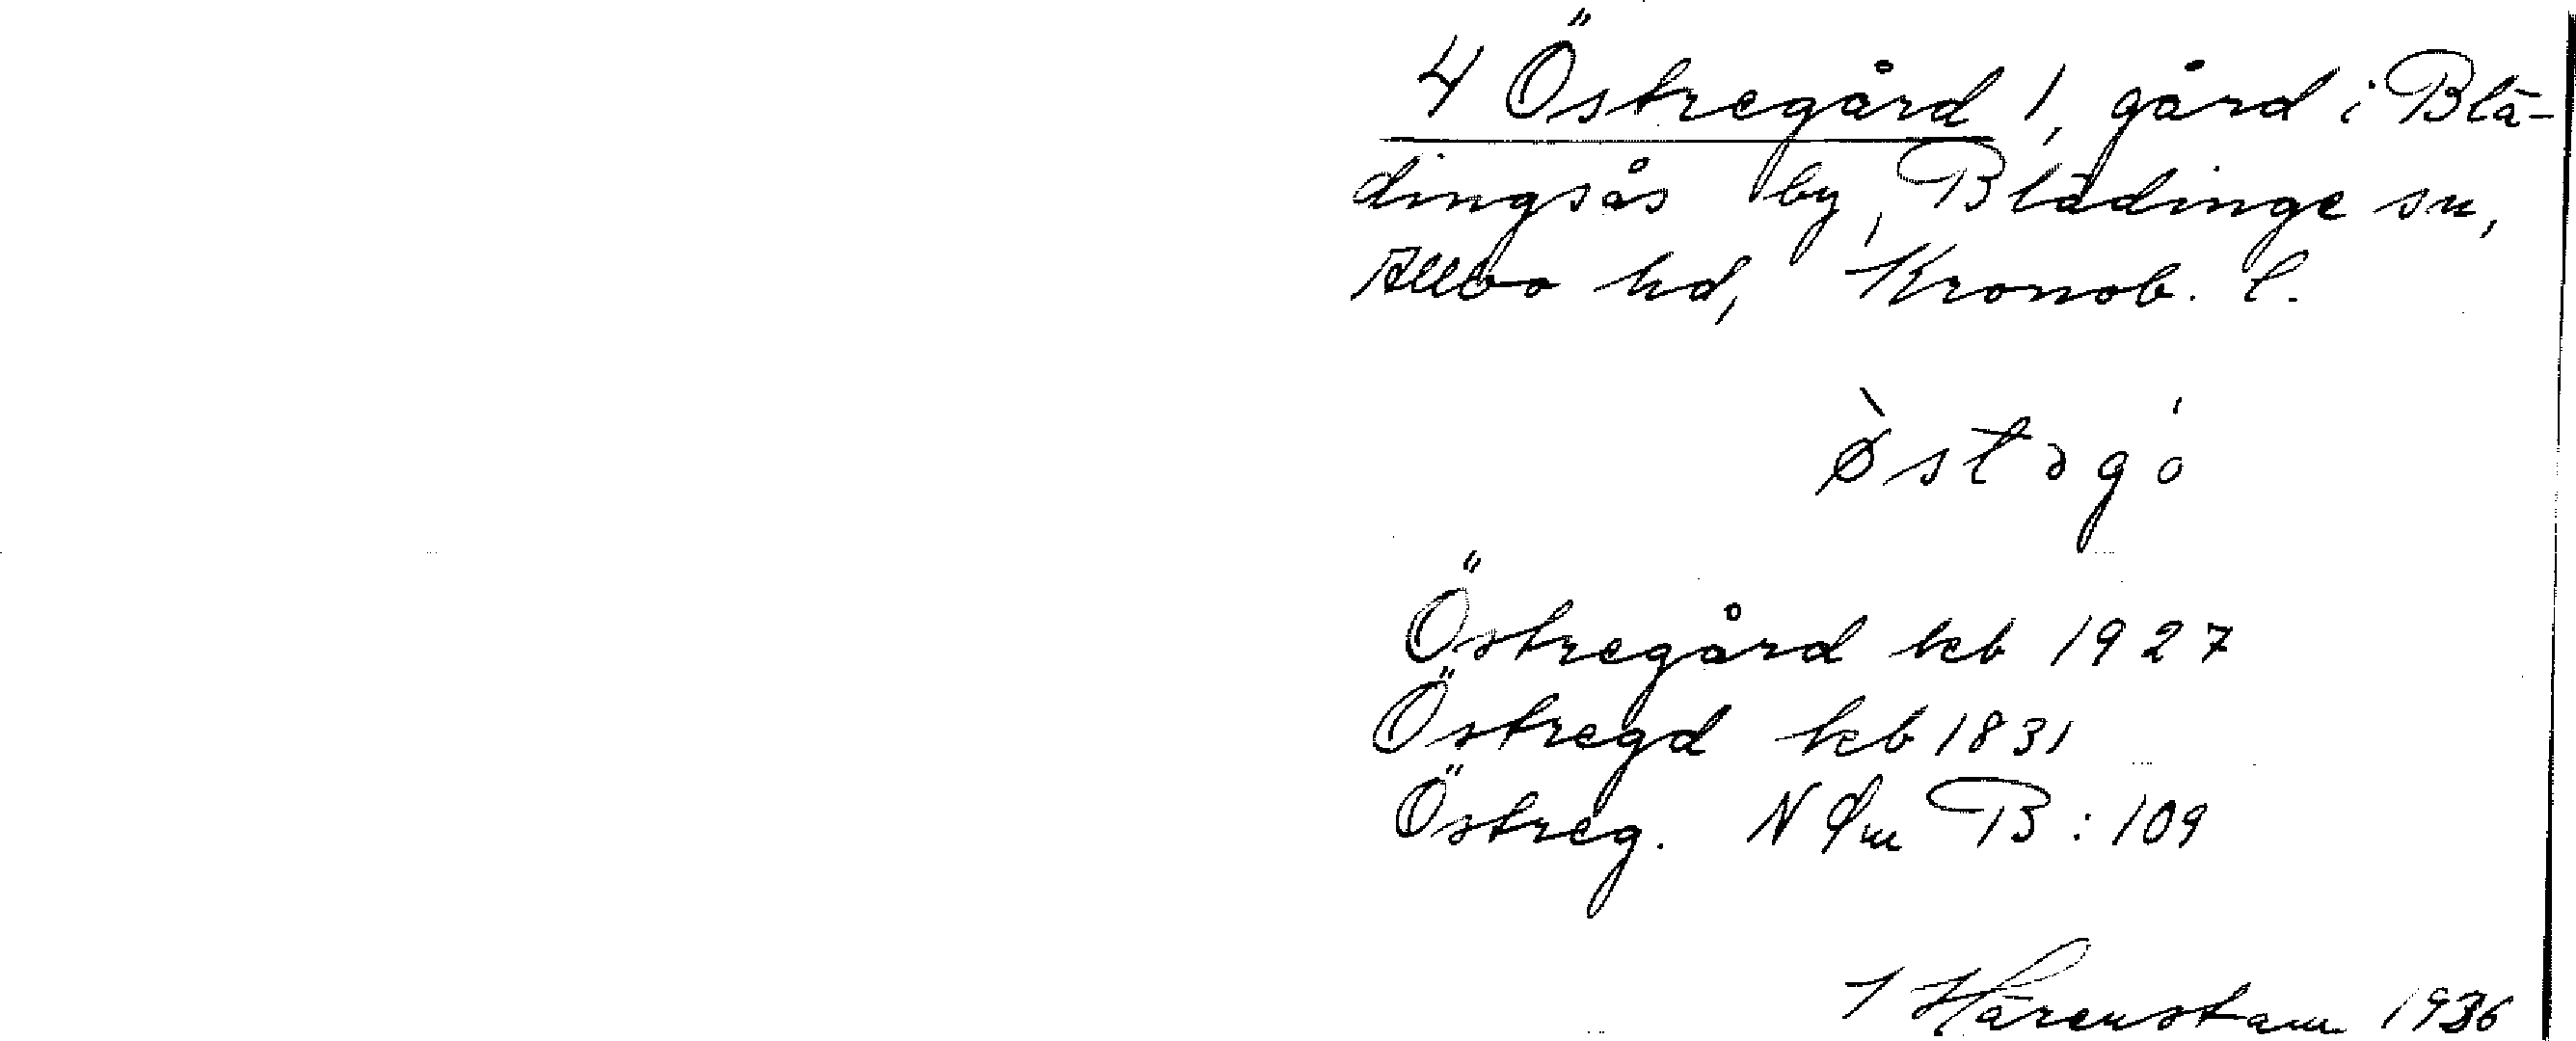 4 Östregård 1, gård i Blä-
dingsås by, Blädinge sn,
Allbo hd, Kronob. l.
Östregård kb 1927
Östregd kb 1831
Östreg. N Öm B: 109
Härenstam 1936